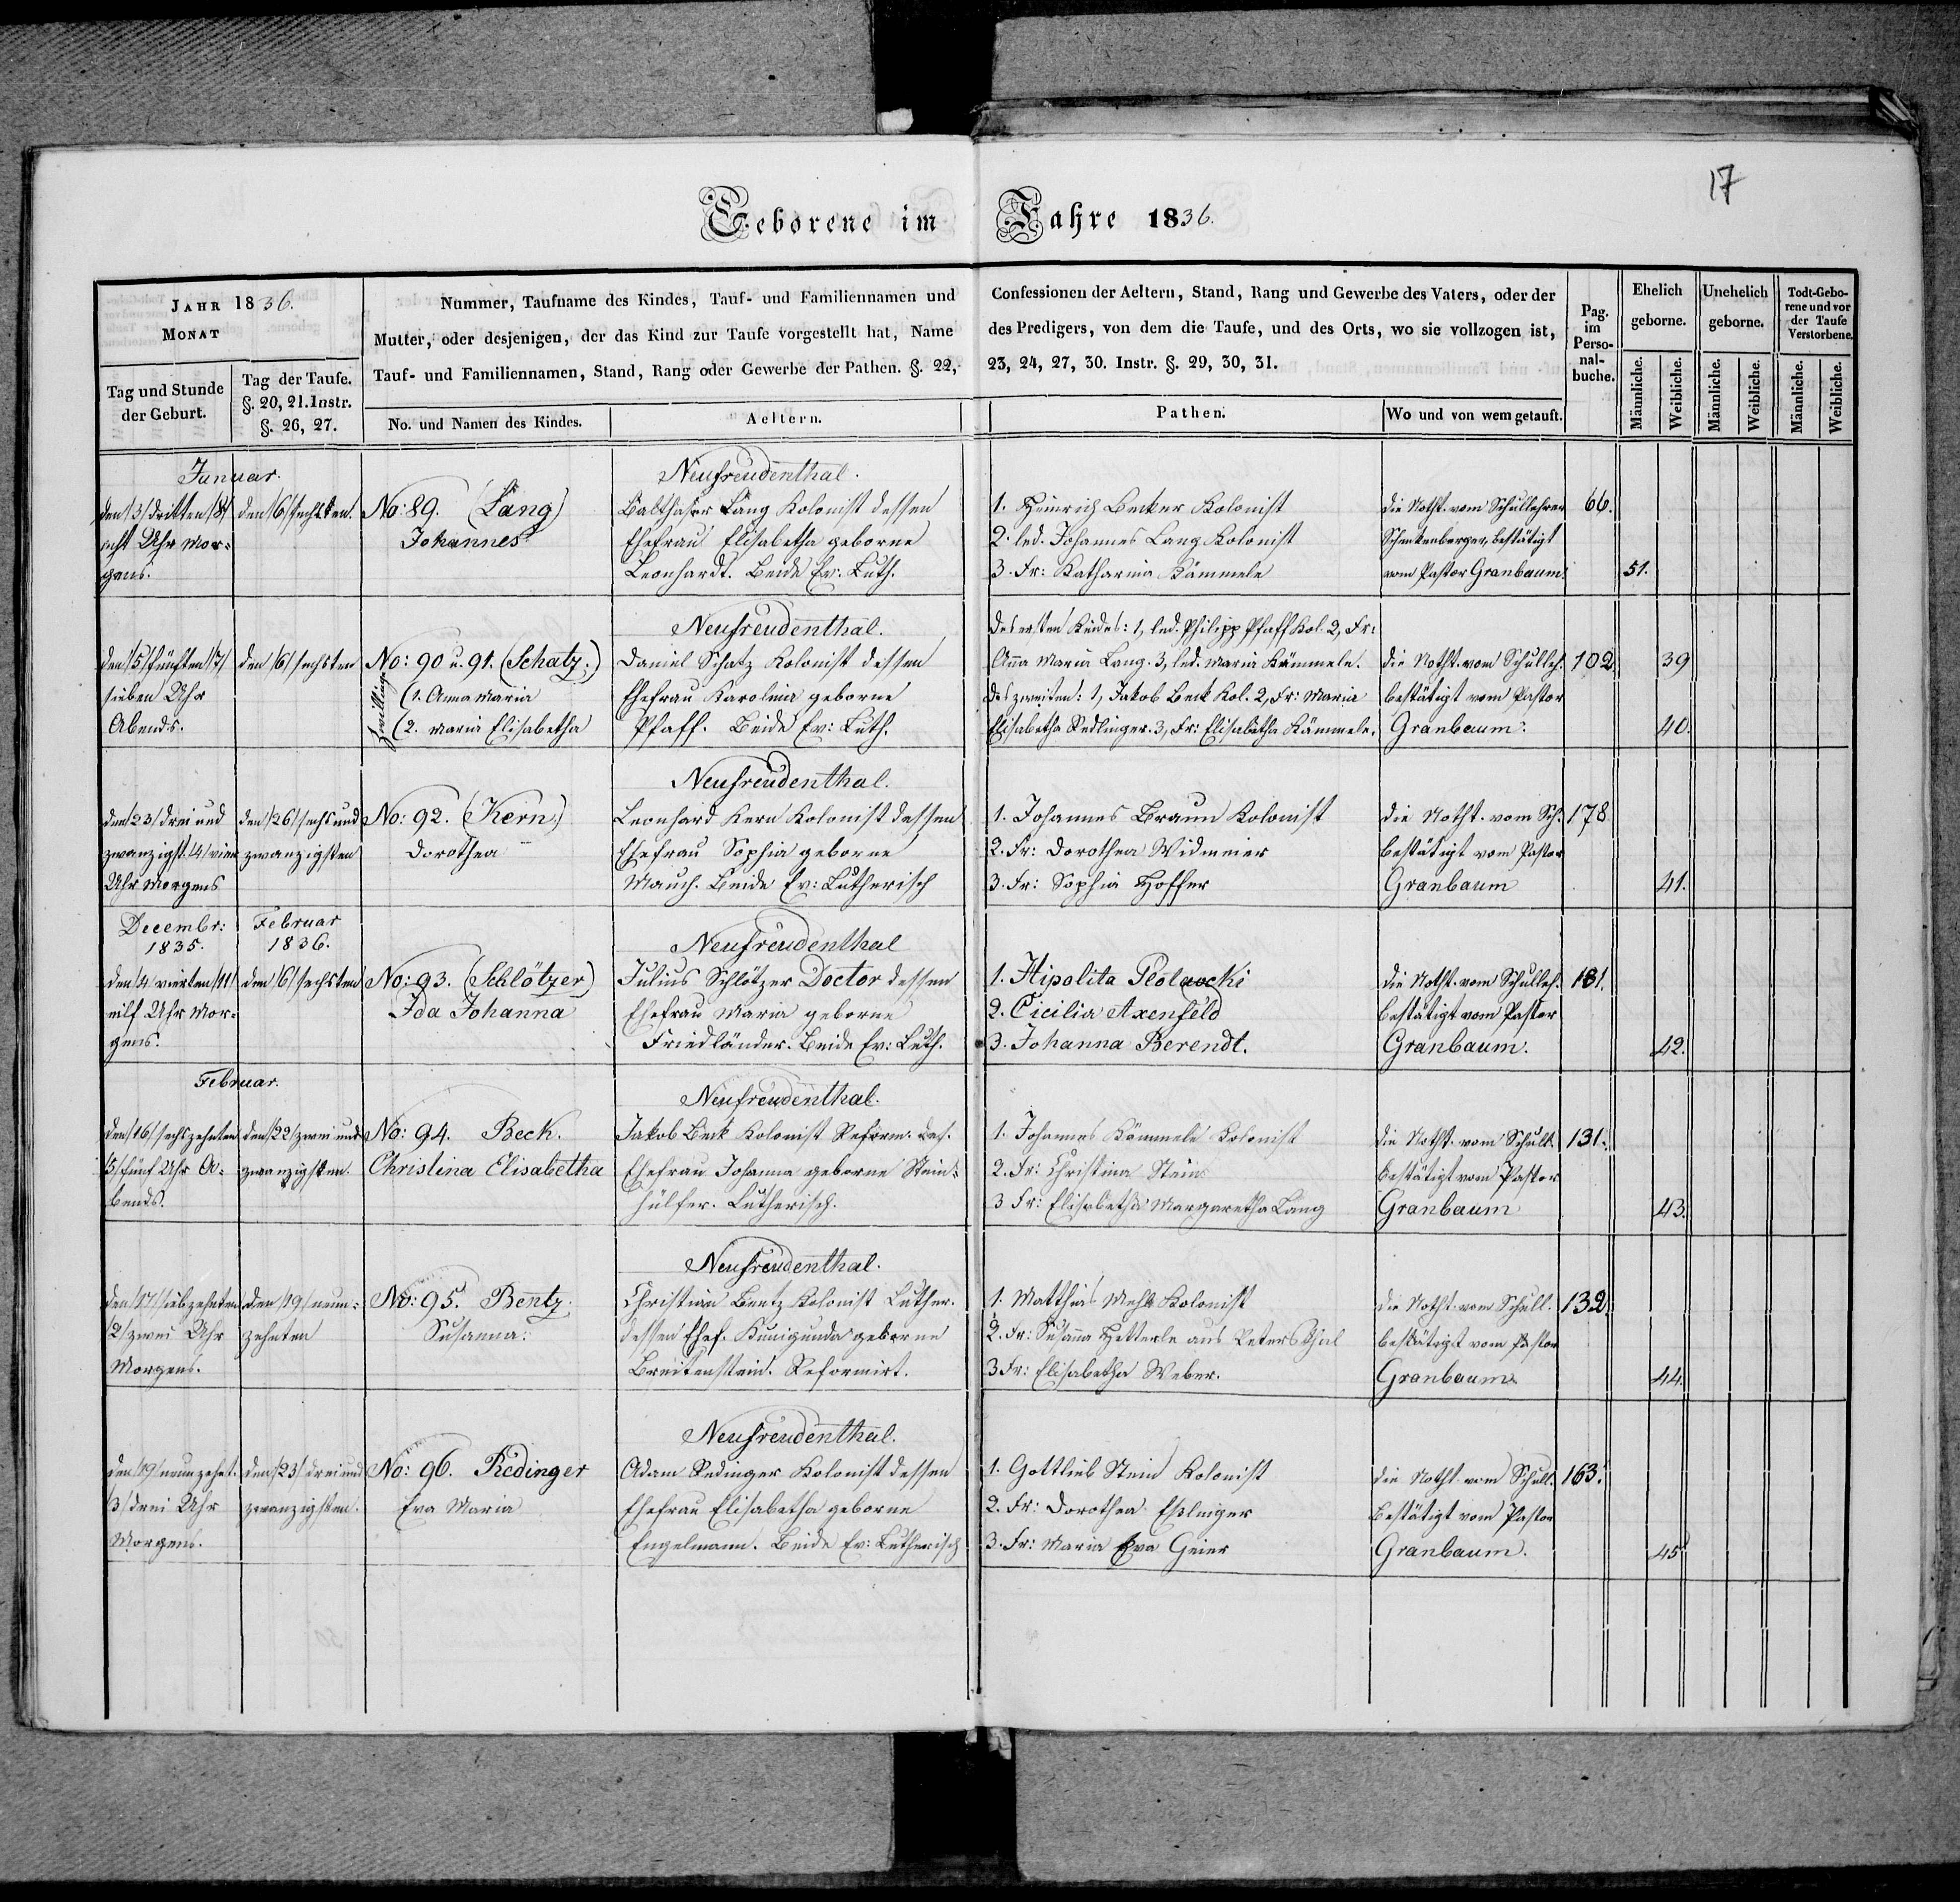 17
Geborene im Jahre 1836.
JAHR 1836.
MONAT
Tag und Stunde der Geburt.
Tag der Taufe. §. 20, 21. Instr. §. 26, 27.
Nummer, Taufname des Kindes, Tauf- und Familiennamen und Confessionen der Aeltern, Stand, Rang und Gewerbe des Vaters, oder der
Mutter, oder desjenigen, der das Kind zur Taufe vorgestellt hat, Name des Predigers, von dem die Taufe, und des Orts, wo sie vollzogen ist,
Tauf- und Familiennamen, Stand, Rang oder Gewerbe der Pathen. §. 22, 23, 24, 27, 30. Instr. §. 29, 30, 31.
No. und Namen des Kindes.
Aeltern.
Pathen.
Wo und von wem getauft.
Pag. im Perso- nal- buche.
Ehelich geborne.
Unehelich geborne.
Todt-Gebo- rene und vor der Taufe Verstorbene.
Männliche. Weibliche. Männliche. Weibliche. Männliche. Weibliche.
Januar.
den /3/ dritten /8/
acht Uhr Mor-
gens.
den /6/ sechsten.
No: 89. (Lang)
Johannes
Neufreudenthal.
Balthaser Lang Kolonist dessen
Ehefrau Elisabetha geborne
Leonhardt. Beide Ev: Luth.
1. Heinrich Becker Kolonist
2. led. Johannes Lang Kolonist
3. Fr: Katharina Kämmele
die Noth. vom Schullehrer
Schenkenberger, bestätigt
vom Pastor Granbaum.
66.
51.
den /5/ fünften /7/
sieben Uhr
Abends.
den /6/ sechsten
No: 90 u. 91. (Schatz.)
Zwillinge
(1. Anna Maria
(2. Maria Elisabetha
Neufreudenthal.
Daniel Schatz Kolonist dessen
Ehefrau Karolina geborne
Pfaff. Beide Ev: Luth.
des ersten Kindes: 1, led. Philipp Pfaff Kol. 2, Fr:
Anna Maria Lang. 3, led. Maria Kämmele.
des zweiten: 1, Jakob Beck Kol. 2, Fr: Maria
Elisabetha Redlinger. 3, Fr: Elisabetha Kämmele.
die Noth. vom Schulleh.
bestätigt vom Pastor
Granbaum.
102.
39
40.
den /23/ drei und
zwanzigst. /4/ vier
Uhr Morgens
den /26/ sechs und
zwanzigsten
No: 92. (Kern)
Dorothea
Neufreudenthal.
Leonhard Kern Kolonist dessen
Ehefrau Sophia geborne
Mauch. Beide Ev: Lutherisch
1. Johannes Braun Kolonist
2. Fr: Dorothea Widmeier
3. Fr: Sophia Hoffer
die Noth. vom Sch.
bestätigt vom Pastor
Granbaum
178
41.
Decembr:
1835.
Februar
1836.
den /4 vierten /11/
eilf Uhr Mor-
gens.
den /6/ sechsten
No: 93. (Schlötzer)
Ida Johanna
Neufreudenthal
Julius Schlötzer Doctor dessen
Ehefrau Maria geborne
Friedländer. Beide Ev: Luth.
1. Hipolita
2. Cicilia Axenfeld
3. Johanna Berendt.
die Noth. vom Schulleh.
bestätigt vom Pastor
Granbaum.
181.
42.
Februar.
den /16/ sechszehnten
/5/ fünf Uhr A-
bends.
den /22/ zwei und
zwanzigsten.
No: 94. Beck.
Christina Elisabetha
Neufreudenthal.
Jakob Beck Kolonist Reform. des.
Ehefrau Johanna geborne Stein-
hülfer. Lutherisch.
1. Johannes Kämmele Kolonist
2. Fr: Christina Stein
3 Fr: Elisabetha Margaretha Lang
die Noth. vom Schull.
bestätigt vom Pastor
Granbaum
131.
43.
den /17/ siebzehnten
/2/ zwei Uhr
Morgens.
den /19/ neun-
zehnten
No: 95. Bentz.
Susanna.
Neufreudenthal.
Christian Bentz Kolonist Luther.
dessen Ehef. Kunigunda geborne
Breitenstein. Reformirt.
1. Matthias Mehl Kolonist
2. Fr: Susanna Hetterle aus Petersthal
3 Fr: Elisabetha Weber.
die Noth. vom Schull.
bestätigt vom Pastor
Granbaum
132.
44.
den /19/ neunzehnt.
/3/ drei Uhr
Morgens.
den /23/ drei und
zwanzigsten.
No: 96. Redinger
Eva Maria
Neufreudenthal.
Adam Redinger Kolonist dessen
Ehefrau Elisabetha geborne
Engelmann. Beide Ev: Lutherisch
1. Gottlieb Stein Kolonist
2. Fr: Dorothea Eßlinger
3. Fr: Maria Eva Geier
die Noth. vom Schull.
bestätigt vom Pastor
Granbaum.
163.
45